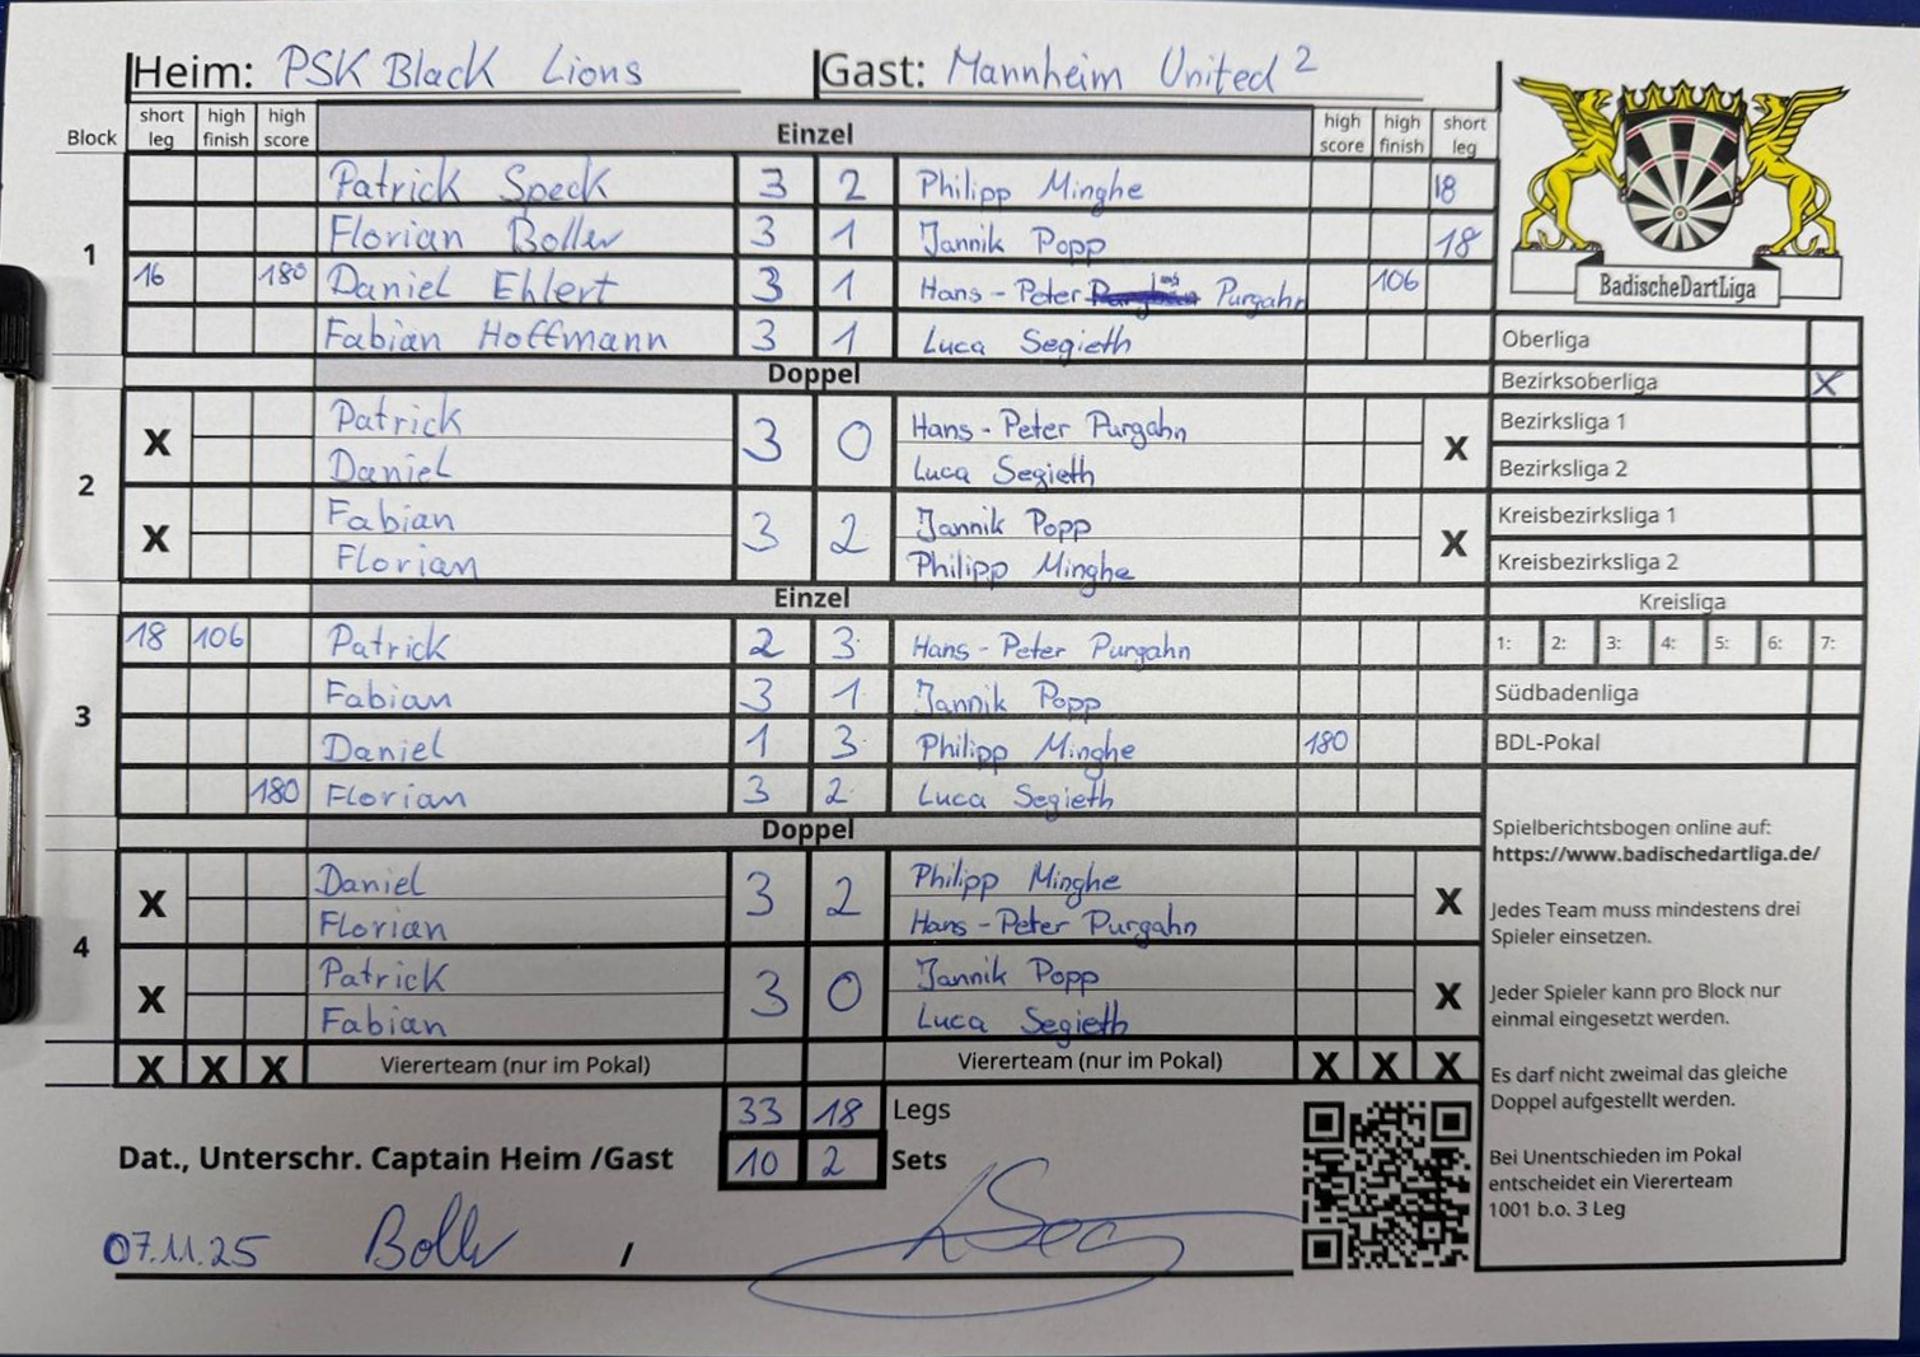 Heim: PSK Black Lions Gast: Mannheim United 2
Block short leg high finish high score Einzel high score high finish short leg
1
Patrick Speck 3 2 Philipp Minghe 18
Florian Boller 3 1 Jannik Popp 18
16 180 Daniel Ehlert 3 1 Hans-Peter Purgahn 106
Fabian Hoffmann 3 1 Luca Segieth
Doppel
2
X Patrick 3 0 Hans-Peter Purgahn X
Daniel Luca Segieth
X Fabian 3 2 Jannik Popp X
Florian Philipp Minghe
Einzel
3
18 106 Patrick 2 3 Hans-Peter Purgahn
Fabian 3 1 Jannik Popp
Daniel 1 3 Philipp Minghe 180
180 Florian 3 2 Luca Segieth
Doppel
4
X Daniel 3 2 Philipp Minghe X
Florian Hans-Peter Purgahn
X Patrick 3 0 Jannik Popp X
Fabian Luca Segieth
X X X Viererteam (nur im Pokal) Viererteam (nur im Pokal) X X X
33 18 Legs
Dat., Unterschr. Captain Heim /Gast 10 2 Sets
07.11.25 Boller /
BadischeDartLiga
Oberliga
Bezirksoberliga X
Bezirksliga 1
Bezirksliga 2
Kreisbezirksliga 1
Kreisbezirksliga 2
Kreisliga
1: 2: 3: 4: 5: 6: 7:
Südbadenliga
BDL-Pokal
Spielberichtsbogen online auf:
https://www.badischedartliga.de/
Jedes Team muss mindestens drei
Spieler einsetzen.
Jeder Spieler kann pro Block nur
einmal eingesetzt werden.
Es darf nicht zweimal das gleiche
Doppel aufgestellt werden.
Bei Unentschieden im Pokal
entscheidet ein Viererteam
1001 b.o. 3 Leg